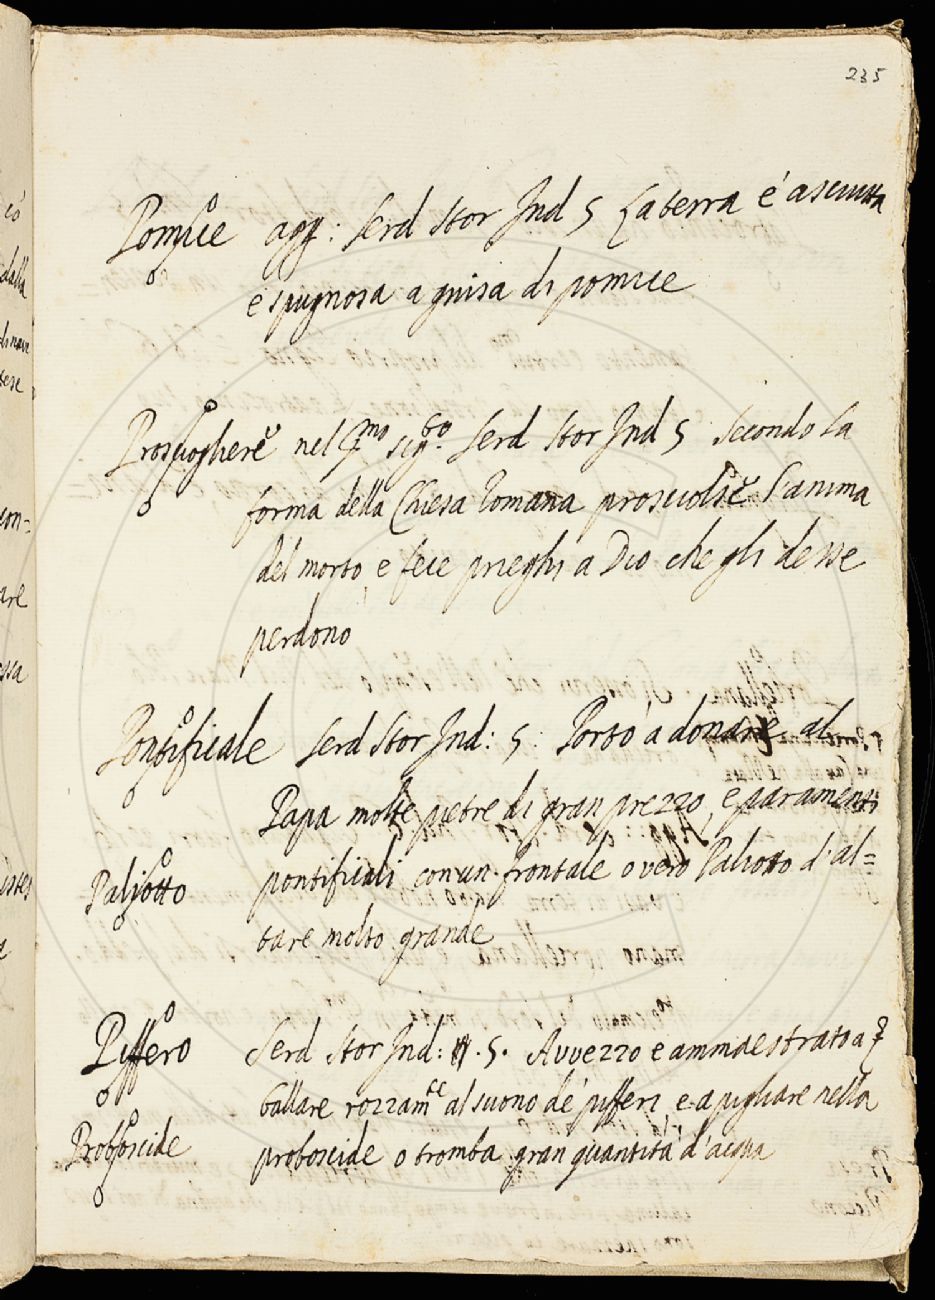 235
Pomice agg: Serd Stor Ind 5 La terra è asciutta
e spugnosa a guisa di pomice
Prosciogliere nel pmo sigto Serd Stor Ind 5 Secondo la
forma della Chiesa Romana prosciolse l'anima
del morto, e fece prieghi a Dio che gli desse
perdono
Pontificale Serd Stor Ind: 5: Portò a donare al
Papa molte pietre di gran prezzo, e paramenti
Paliotto pontificali con un frontale overo Paliotto d'al=
tare molto grande
Piffero Serd Stor Ind: 5. Avvezzo e ammaestrato a
ballare rozzamte al suono de' pifferi, e a pigliare nella
Proboscide proboscide o tromba gran quantità d'acqua